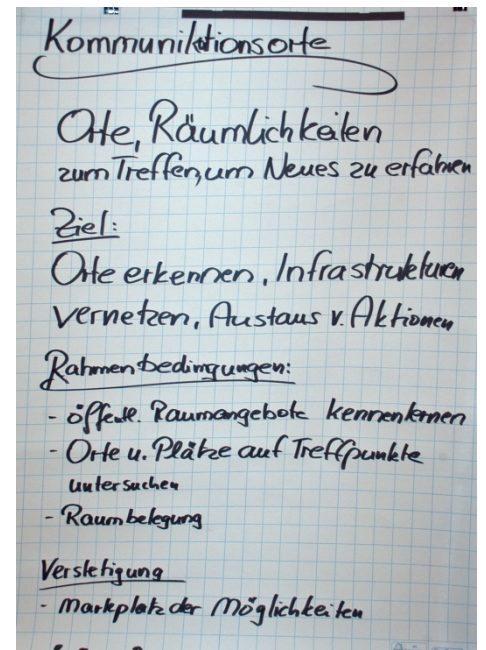 Kommuniktionsorte
Orte, Räumlichkeiten
zum Treffen, um Neues zu erfahren
Ziel:
Orte erkennen, Infrastrukturen
vernetzen, Austaus v. Aktionen
Rahmenbedingungen:
- öffentl. Raumangebote kennenlernen
- Orte u. Plätze auf Treffpunkte
untersuchen
- Raumbelegung
Verstetigung
- Markplatz der Möglichkeiten